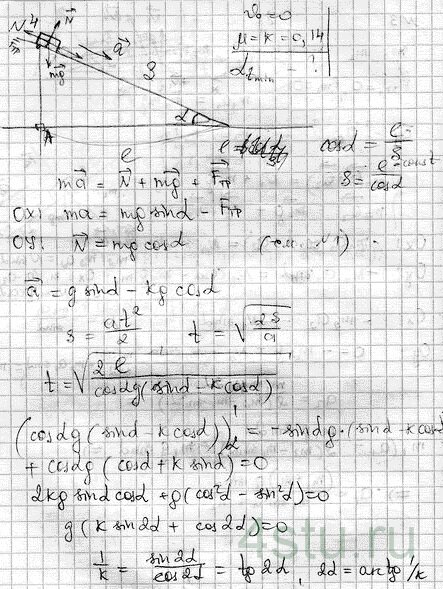 v₀ = 0
μ = k = 0,14
α t min - ?
N 4 N⃗
a⃗
mg⃗
S
α
A
l
cosα = l/S
S = l - const / cosα
ma⃗ = N⃗ + mg⃗ + F⃗тр
OX: ma = mg sinα - Fтр
OY: N⃗ = mg cosα
a⃗ = g sinα - kg cosα
S = at²/2 t = √(2S/a)
t = √(2l / cosα g (sinα - k cosα))
(cosα g (sinα - k cosα))'α = - sinα g · (sinα - k cosα)
+ cosα g (cosα + k sinα) = 0
2kg sinα cosα + g (cos²α - sin²α) = 0
g (k sin 2α + cos 2α) = 0
1/k = sin 2α / cos 2α = tg 2α , 2α = arctg 1/k
4stu.ru